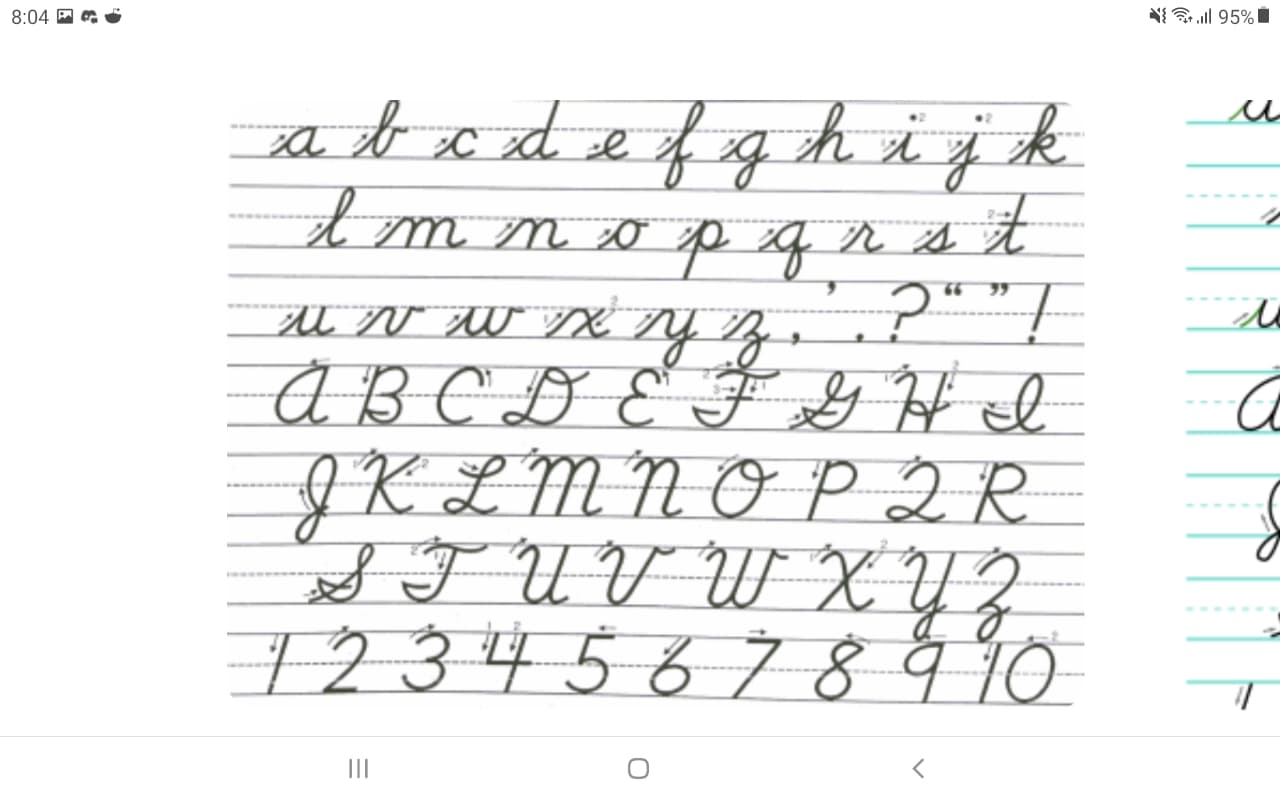 8:04 95%
a b c d e f g h i j k
l m n o p q r s t
u v w x y z , ' . ? “ ” !
A B C D E F G H I
J K L M N O P Q R
S T U V W X Y Z
1 2 3 4 5 6 7 8 9 10